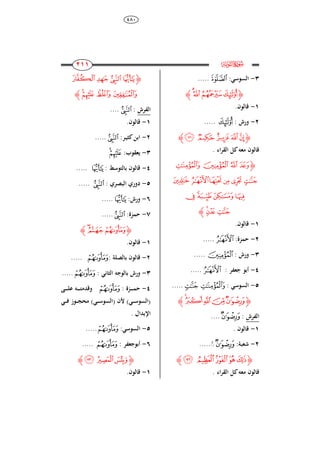 ٤٨٠
٢١١
٣- السوسي: ٱلصَّلَوٰةَ .....
﴿ أُو۟لَٰٓئِكَ سَيَرْحَمُهُمُ ٱللَّهُ ﴾
١- قالون.
٢- ورش : أُو۟لَٰٓئِكَ .....
﴿ إِنَّ ٱللَّهَ عَزِيزٌ حَكِيمٌ ﴾
قالون معه كل القراء .
﴿ وَعَدَ ٱللَّهُ ٱلْمُؤْمِنِينَ وَٱلْمُؤْمِنَٰتِ
جَنَّٰتٍ تَجْرِى مِن تَحْتِهَا ٱلْأَنْهَٰرُ خَٰلِدِينَ
فِيهَا وَمَسَٰكِنَ طَيِّبَةً فِى
جَنَّٰتِ عَدْنٍ ﴾
١- قالون.
٢- حمزة: ٱلْأَنْهَٰرُ .....
٣- ورش : ٱلْمُؤْمِنِينَ .....
٤- أبو جعفر : ٱلْأَنْهَٰرُ .....
٥- السوسي : وَٱلْمُؤْمِنَٰتِ جَنَّٰتٍ .....
﴿ وَرِضْوَٰنٌ مِّنَ ٱللَّهِ أَكْبَرُ ﴾
الفرش : وَرِضْوَٰنٌ ....
١- قالون .
٢- شعبة: وَرِضْوَٰنٌ ......
﴿ ذَٰلِكَ هُوَ ٱلْفَوْزُ ٱلْعَظِيمُ ﴾
قالون معه كل القراء .
﴿ يَٰٓأَيُّهَا ٱلنَّبِىُّ جَٰهِدِ ٱلْكُفَّارَ
وَٱلْمُنَٰفِقِينَ وَٱغْلُظْ عَلَيْهِمْ ﴾
الفرش : ٱلنَّبِىُّ ....
١- قالون.
٢- ابن كثير: ٱلنَّبِىُّ .....
٣- يعقوب: عَلَيْهِمْ
٤- قالون بالتوسط : يَٰٓأَيُّهَا .....
٥- دوري البصري : ٱلنَّبِىُّ .....
٦- ورش: يَٰٓأَيُّهَا .....
٧- حمزة: ٱلنَّبِىُّ .....
﴿ وَمَأْوَىٰهُمْ جَهَنَّمُ ﴾
١- قالون.
٢- قالون بالصلة : وَمَأْوَىٰهُمْ .....
٣- ورش بالوجه الثاني : وَمَأْوَىٰهُمْ .....
٤- حمـزة : وَمَأْوَىٰهُمْ وقدمتـه علـى
(السوسي) لأن (السوسـي) محجـوز فـي
الإبدال .
٥- السوسي: وَمَأْوَىٰهُمْ .....
٦- ابوجعفر : وَمَأْوَىٰهُمْ .....
﴿ وَبِئْسَ ٱلْمَصِيرُ ﴾
١- قالون.